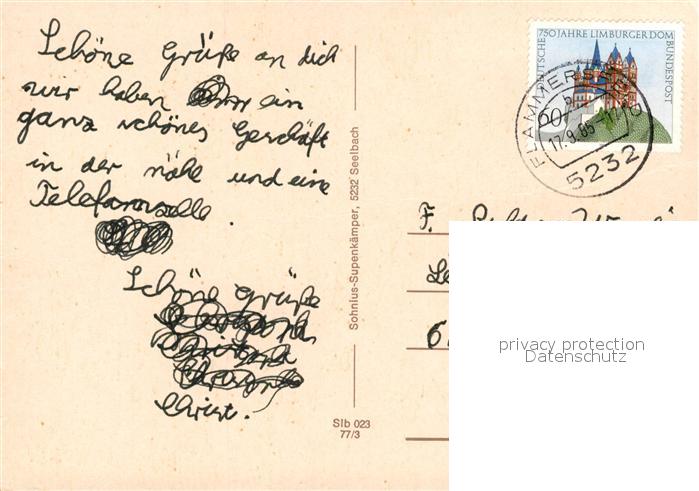 Schöne Grüße an dich
wir haben ein
ganz schönes Geschäft
in der nähe und eine
Telefonzelle.
Schöne Grüße
Christ.
Sohnius-Supenkämper, 5232 Seelbach
Slb 023
77/3
750 JAHRE LIMBURGER DOM
DEUTSCHE BUNDESPOST
60
FLAMMER
b
17.9.85-17
5232
F.
privacy protection
Datenschutz